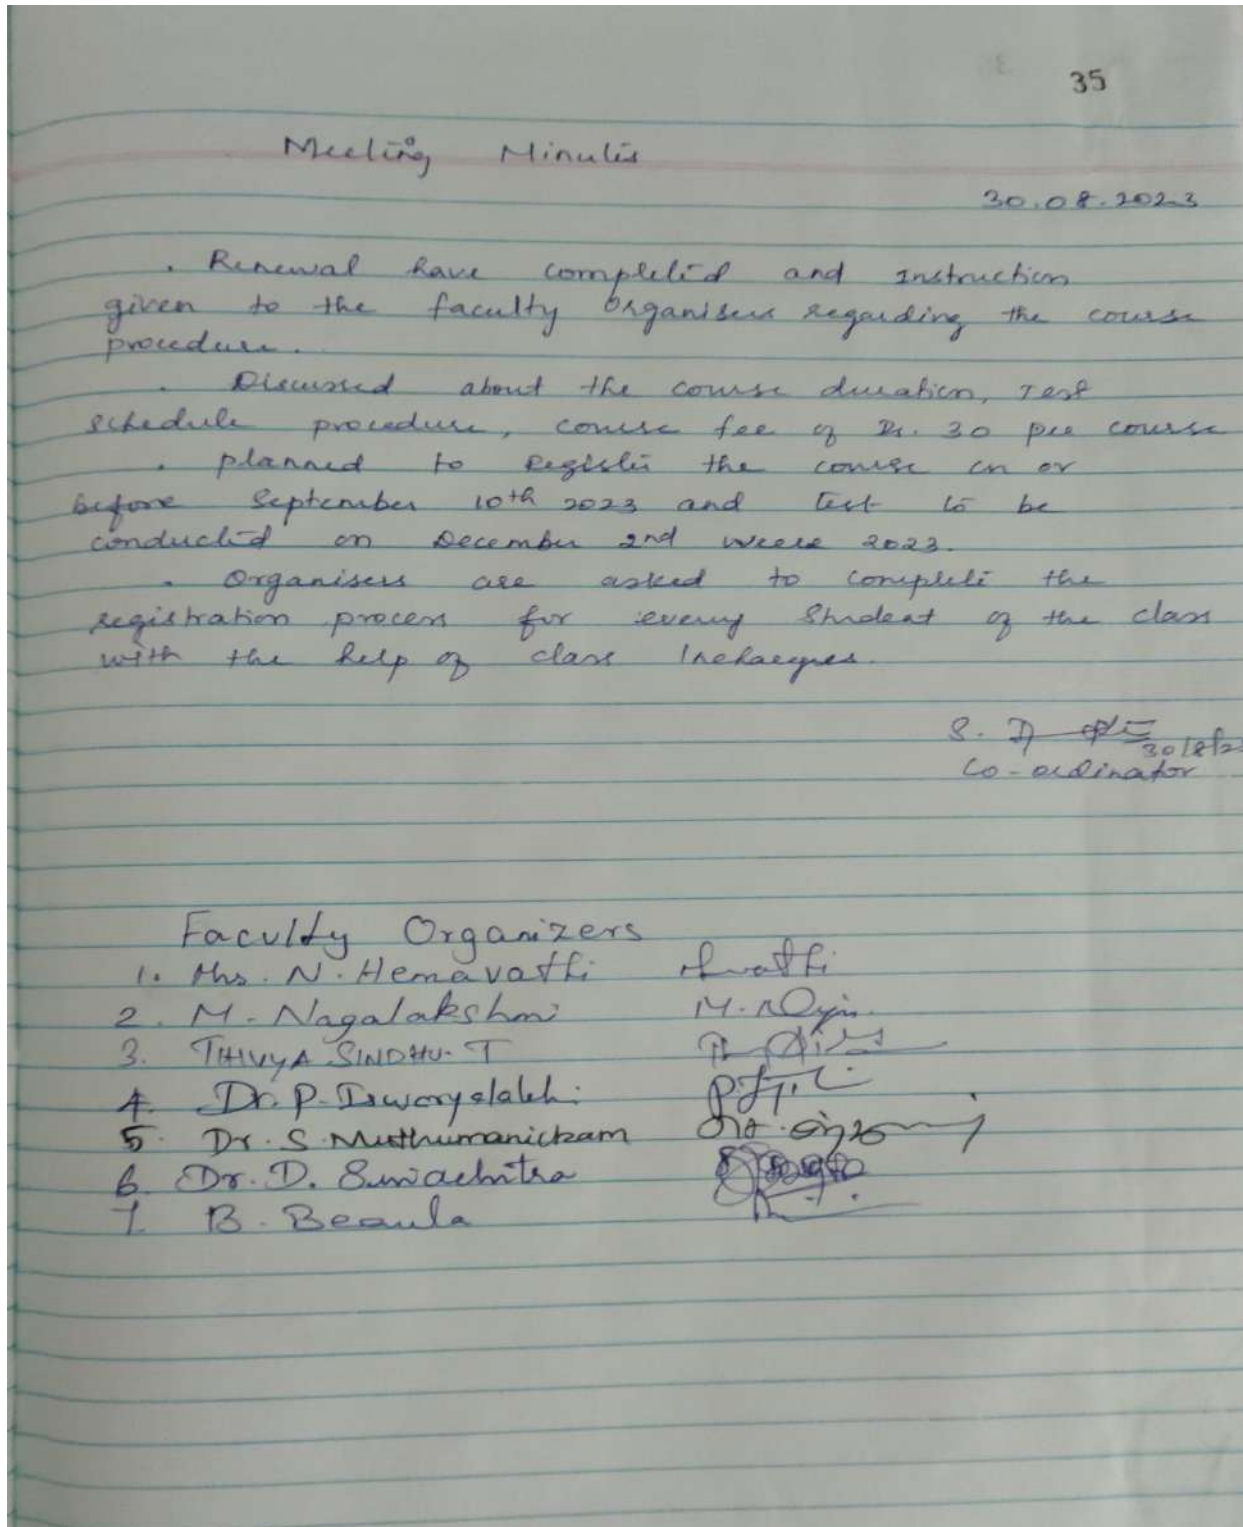 35
Meeting Minutes
30.08.2023
. Renewal have completed and instruction
given to the faculty organisers regarding the course
procedure.
. Discussed about the course duration, Test
schedule procedure, course fee of Rs. 30 per course
. planned to Register the course on or
before September 10th 2023 and test to be
conducted on December 2nd week 2023.
. Organisers are asked to complete the
registration process for every Student of the class
with the help of class Incharges.
S.
30/8/23
Co-ordinator
Faculty Organizers
1. Mrs. N. Hemavathi
2. M. Nagalakshmi M.
3. THIVYA SINDHU. T
4. Dr. P.
5. Dr. S. Muthumanickam
6. Dr. D.
7. B. Beaula